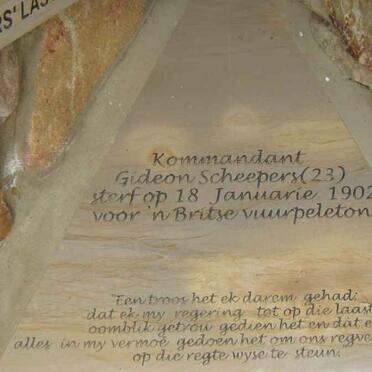 RS' LAS
Kommandant
Gideon Scheepers (23)
sterf op 18 Januarie 1902
voor 'n Britse vuurpeleton
"Een troos het ek darem gehad:
dat ek my regering tot op die laast
oomblik getrou gedien het en dat e
alles in my vermoë gedoen het om ons regve
op die regte wyse te steun.